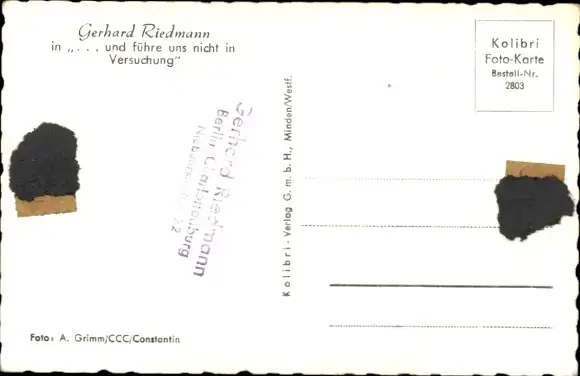 Gerhard Riedmann
in „. . . und führe uns nicht in
Versuchung"
Kolibri
Foto-Karte
Bestell-Nr.
2803
Gerhard Riedmann
Berlin Charlottenburg
Kolibri-Verlag G.m.b.H., Minden/Westf.
Foto: A. Grimm/CCC/Constantin